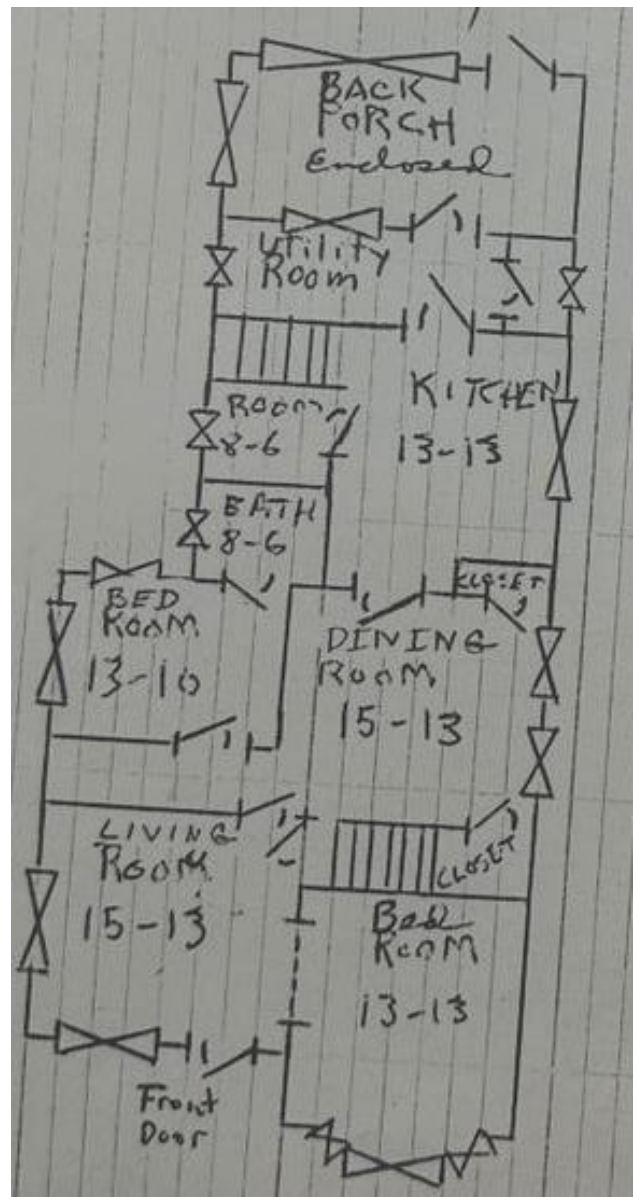 BACK
PORCH
Enclosed
Utility
Room
KITCHEN
13-13
ROOM
8-6
BATH
8-6
BED
ROOM
13-10
CLOSET
DINING
ROOM
15-13
LIVING
ROOM
15-13
CLOSET
Bed
ROOM
13-13
Front
Door